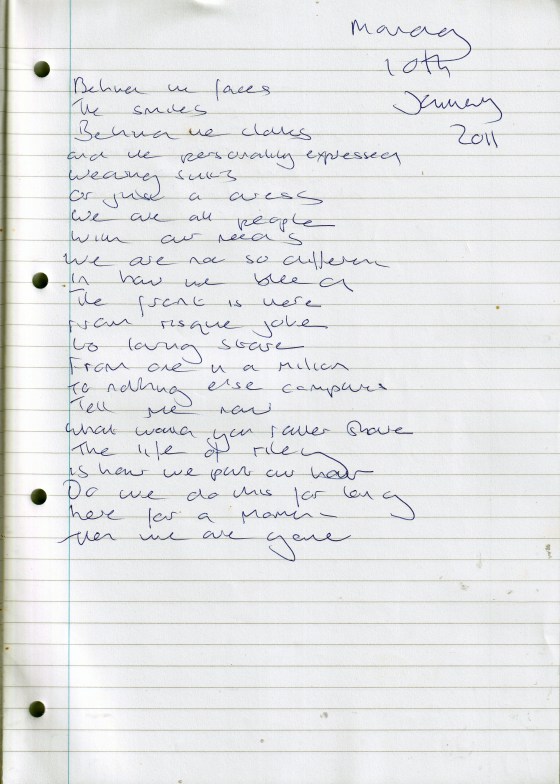 Monday
10th
January
2011
Behind the faces
The smiles
Behind the clothes
and the personality expressed
wearing suits
or just a dress
We are all people
With our needs
We are not so different
In how we bleed
The front is here
From risque joke
to loving stare
From one in a million
To nothing else compares
Tell me now
what would you rather share
The life of riley
is how we part our hair
Do we do this for long
here for a moment
then we are gone